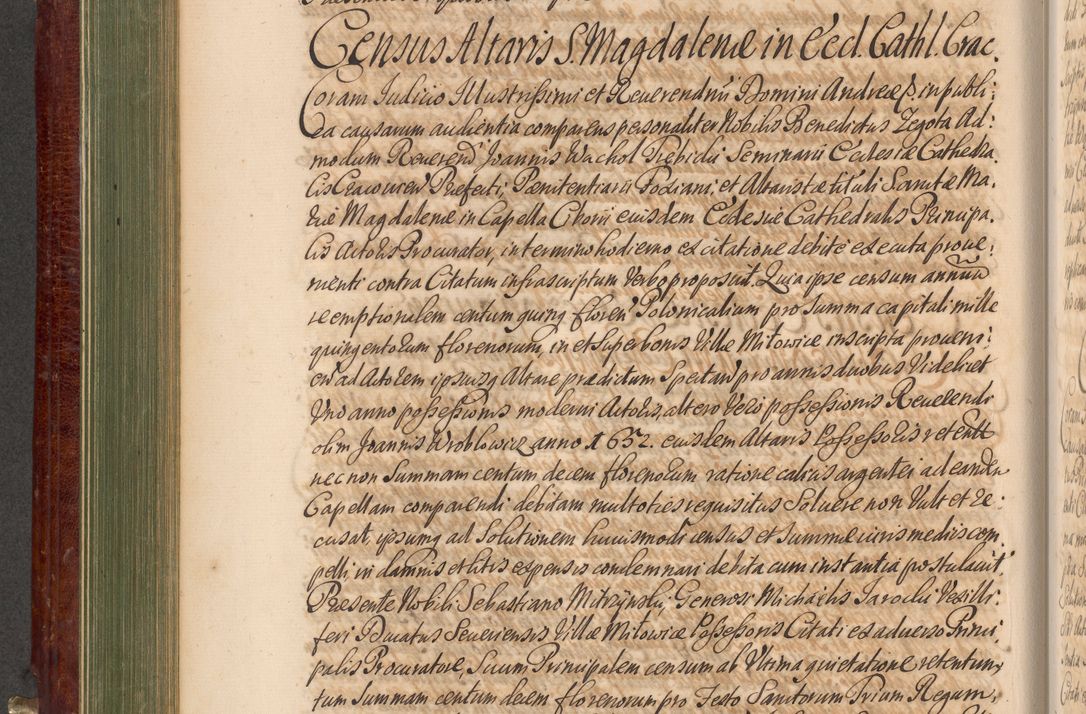 Census Altaris S. Magdalenæ in Eccl. Cathl. Crac.
Coram Judicio Illustrissimi et Reverendmi Domini Andreæ P. in publi:
ca causarum audientia comparens personaliter Nobilis Benedictus Zegota Ad:
modum Reverend Joannis Wachol Prebidii Seminarii Ecclesiæ Cathedra
lis Cracovien Præfecti, Pænitentiarii Podiani, et Altaristæ tituli Sanctæ Ma:
riæ Magdalenæ in Capella Chorii eiusdem Ecclesiæ Cathedralis Principa,
lis Actoris Procurator, in termino hodierno ex citatione debite executa prove:
nienti contra Citatum infrascriptum Verbo proposuit. Quia ipse censum annuũ
reemptionalem centum quinq floren Polonicalium pro Summa capitali mille
quingentorum florenorum, in et super bonis Villæ Miłowice inscripta proveni:
en ad Actorem ipsiusq Altare prædictum Spectan pro annis duobus Videlicet
Uno anno possessionis moderni Actoris, altero Vero possessionis Reverendi
olim Joannis Wroblowicz anno 1652. eiusdem Altaris Possessoris retent
nec non Summam centum decem florenorum ratione calicis argentei ad eanden
Capellam comparendi debitam multoties requisitus Solvere non Vult et re:
cusat, ipsumq ad Solutionem huiusmodi census et Summæ iuris mediis com
pelli in damnis et litis expensis condemnari debita cum instantia postulavit.
Præsente Nobili Sebastiano Mitrzynski, Generosi Michaelis Jarocki Vexilli:
feri Ducatus Severiensis Villæ Miłowice Possessoris Citati ex adverso Princi
palis Procuratore, Suum Principalem censum ab Ultima quietatione retentum,
tum Summam centum decem florenorum pro Festo Sanctorum Trium Regum,